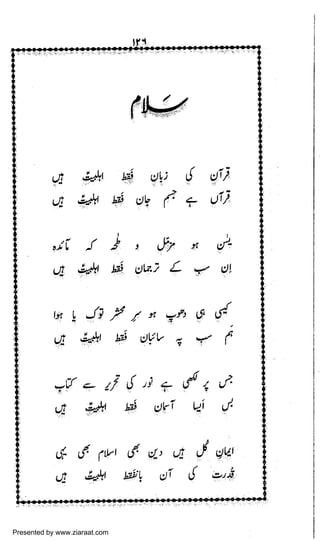 ۱۲۶
سَلام
قرآن کی زبان فَقَط اہلبیتؑ ہیں
قرآں ہے جسم جان فَقَط اہلبیتؑ ہیں
یٰسٓ ہو مزمّل و طٰہٰ کہ مائدہ
اِن سب کے ترجمان فَقَط اہلبیتؑ ہیں
کیسی ہی دھوپ ہو سرِ محشر تو کیا ہوا
ہَم سب پہ سائبان فَقَط اہلبیتؑ ہیں
جس پر لکھی ہے نور کی تحریر سے کتاب
بس اَیسا آسمان فَقَط اہلبیتؑ ہیں
ایمانِ کُل ہیں دین بھی اسلام بھی یہی
قُدرت کی آن بان فَقَط اہلبیتؑ ہیں
Presented by www.ziaraat.com